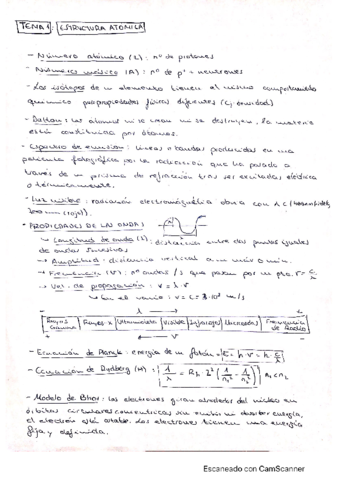 TEMA 1: ESTRUCTURA ATÓMICA
- Número atómico (Z): nº de protones
- Número másico (A): nº de p⁺ + neutrones
- Los isótopos de un elemento tienen el mismo comportamiento
químico pero propiedades físicas diferentes (ej: densidad)
- Dalton: los átomos ni se crean ni se destruyen, la materia
está constituida por átomos.
- Espectro de emisión: líneas o bandas producidas en una
película fotográfica por la radiación que ha pasado a
través de un prisma de refracción tras ser excitadas eléctrica
o térmicamente.
- Luz visible: radiación electromagnética
700 nm (rojo).
- PROPIEDADES DE LAS ONDAS
↳ Longitud de onda (λ): distancia entre dos puntos iguales
de ondas sucesivas
↳ Amplitud: distancia vertical
↳ Frecuencia (ν): nº ondas / s que pasan por un pto. ν = c/λ
↳ Vel. de propagación: v = λ · ν
↳ En el vacío: v = c = 3·10⁸ m/s
λ
Rayos Gamma | Rayos X | Ultravioleta | Visible | Infrarrojo | Microondas | Frecuencia de Radio
+ ν -
- Ecuación de Planck: energía de un fotón: E = h · ν = h · c/λ
- Ecuación de Rydberg (H): 1/λ = R_H · Z² (1/n₁² - 1/n₂²) n₁ < n₂
- Modelo de Bohr: los electrones giran alrededor del núcleo en
órbitas circulares concéntricas sin emitir ni absorber energía,
el electrón está estable. Los electrones tienen una energía
fija y definida.
Escaneado con CamScanner